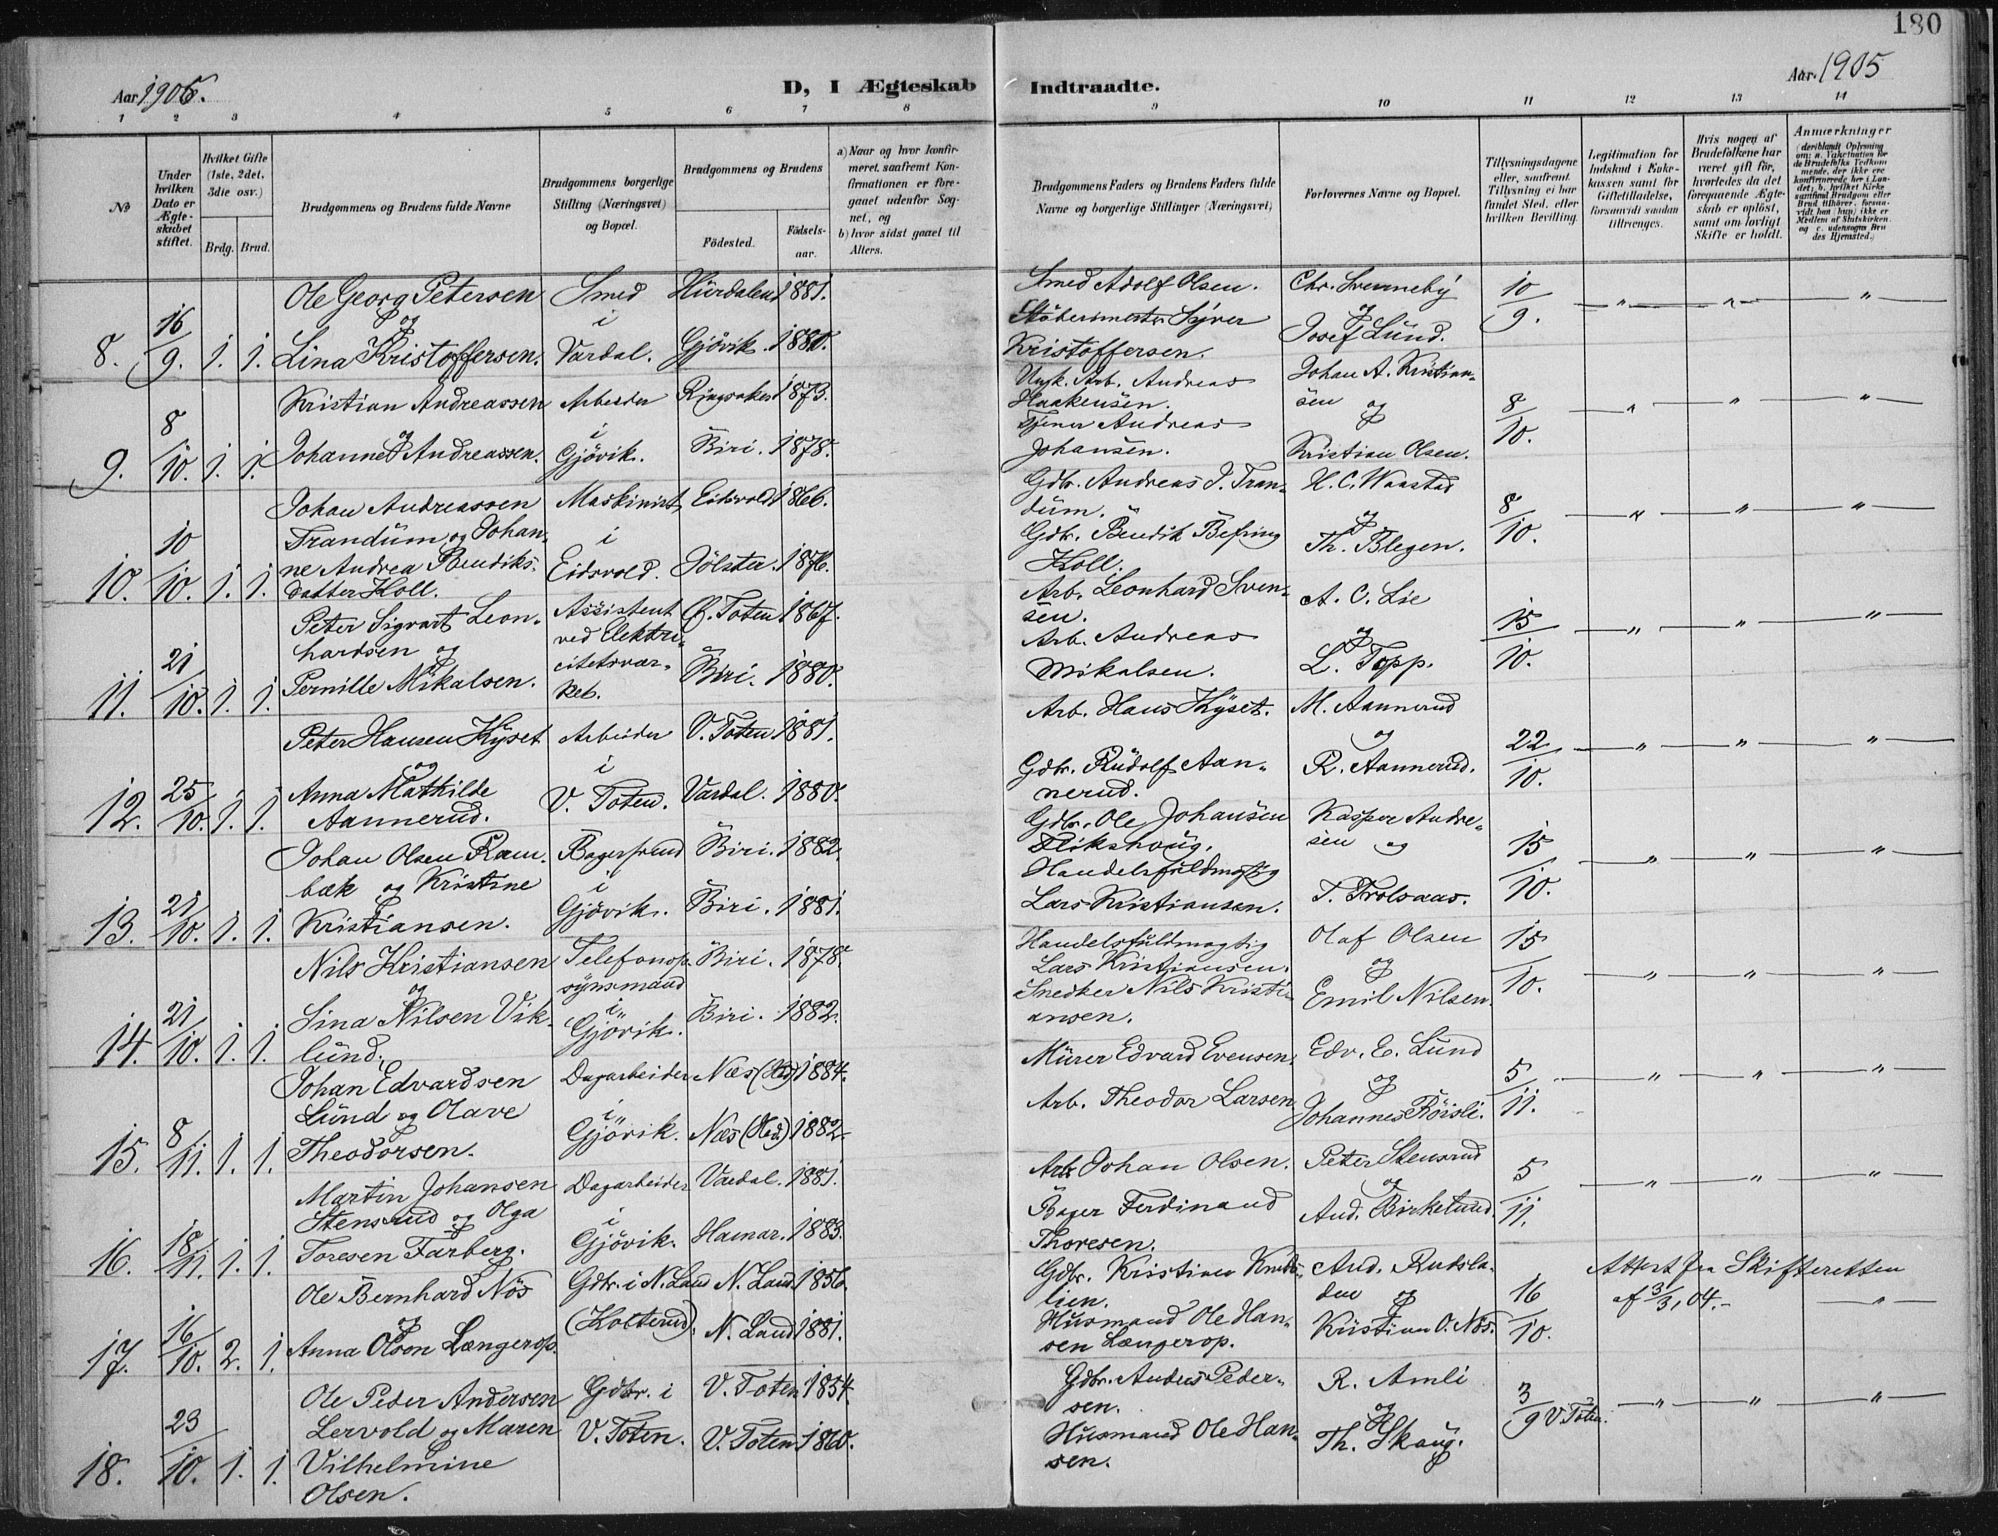 180
Aar 1905.
D, I Ægteskab Indtraadte.
Aar. 1905
1 2 3 4 5 6 7 8 9 10 11 12 13 14
No
Under hvilken Dato er Ægteskabet stiftet.
Hvilket Gifte (1ste, 2det, 3die osv.)
Brdg. Brud.
Brudgommens og Brudens fulde Navne
Brudgommens borgerlige Stilling (Næringsvei) og Bopæl.
Brudgommens og Brudens
Födested.
Födselsaar.
a) Naar og hvor konfirmeret, saafremt Konfirmationen er foregaaet udenfor Sognet, og
b) hvor sidst gaaet til Alters.
Brudgommens Faders og Brudens Faders fulde Navne og borgerlige Stillinger (Næringsvei)
Forlovernes Navne og Bopæl.
Tillysningsdagene eller, saafremt Tillysning ei har fundet Sted, efter hvilken Bevilling.
Legitimation for Indskud i Enkekassen samt for Giftetilladelse, forsaavidt saadan tiltrænges.
Hvis nogen af Brudefolkene har været gift før, hvorledes da det foregaaende Ægteskab er oplöst, samt om lovligt Skifte er holdt.
Anmærkninger
8. 16/9. 1. 1.
Ole Georg Petersen
og
Lina Kristoffersen.
Smed
i
Vardal.
Hurdalen 1881.
Gjövik. 1880.
Smed Adolf Olsen.
Stöbermester Syver
Kristoffersen.
Chr. Svenneby
og
Josef Lund.
10/9.
9. 8/10. 1. 1.
Kristian Andreassen
og
Johanne Andreassen.
Arbeider
i
Gjövik.
Ringsaker 1873.
Biri. 1878.
Arb. Andreas
Haakensen.
Tjener Andreas
Johansen.
Johan A. Kristian-
sen og
Kristian Olsen.
8/10.
10. 10/10. 1. 1.
Johan Andreassen
Trandum og Johan-
ne Andrea Bendiks-
datter Koll.
Maskinist
i
Eidsvold.
Eidsvold 1866.
Jölster. 1876.
Gdbr. Andreas J. Tran-
dum.
Gdbr. Bendik Befring
Koll.
H. C. Waastad
og
Th. Blegen.
8/10.
11. 21/10. 1. 1.
Peter Sigvart Leon-
hardsen og
Pernille Mikalsen.
Assistent
ved Elektri-
citetsvær-
ket.
Ö. Toten 1867.
Biri. 1880.
Arb. Leonhard Sven-
sen.
Arb. Andreas
Mikalsen.
A. C. Lie
og
L. Topp.
15/10.
12. 25/10. 1. 1.
Peter Hansen Kyset
og
Anna Mathilde
Aannerud.
Arbeider
i
V. Toten.
V. Toten 1881.
Vardal. 1880.
Arb. Hans Kyset.
Gdbr. Rudolf Aan-
nerud.
M. Aannerud
og
R. Aannerud.
22/10.
13. 21/10. 1. 1.
Johan Olsen Ram-
bæk og Kristine
Kristiansen.
Bagersvend
i
Gjövik.
Biri. 1882.
Biri. 1881.
Gdbr. Ole Johansen
Handelsfuldmægtig
Lars Kristiansen.
Kasper Andre-
sen og
T. Trolsaas.
15/10.
14. 21/10. 1. 1.
Nils Kristiansen
og
Lina Nilsen Vik-
lund.
Telefonop-
synsmand
i
Gjövik.
Biri. 1878.
Biri. 1882.
Handelsfuldmægtig
Lars Kristiansen.
Snedker Nils Kristi-
ansen.
Olaf Olsen
og
Emil Nilsen.
15/10.
15. 8/11. 1. 1.
Johan Edvardsen
Lund og Olave
Theodorsen.
Dagarbeider
i
Gjövik.
Næs (Hed) 1884.
Næs (Hed) 1882.
Murer Edvard Evensen.
Arb. Theodor Larsen
Edv. E. Lund
og
Johannes Röisli.
5/11.
16. 18/11. 1. 1.
Martin Johansen
Stensrud og Olga
Toresen Farberg.
Dagarbeider
i
Gjövik.
Vardal. 1881.
Hamar. 1883.
Arb. Johan Olsen.
Bager Ferdinand
Thoresen.
Peter Stensrud
og
And. Birkelund.
5/11.
17. 16/10. 2. 1.
Ole Bernhard Nös
og
Anna Olson Længerop.
Gdbr. i N. Land
(Kolterud).
N. Land 1856.
N. Land 1881.
Gdbr. Kristian
lien.
Husmand Ole Han-
sen Længerop.
And. Rudsla-
den og
Kristian O. Nös.
16/10.
Attest fra Skifteretten
af 3/3, 04.
18. 23/10. 1. 1.
Ole Peder Andersen
Lervold og Maren
Vilhelmine
Olsen.
Gdbr. i
V. Toten.
V. Toten 1854.
V. Toten 1860.
Gdbr. Anders Peder-
sen.
Husmand Ole Han-
sen.
R. Amli
og
Th. Skaug.
3/9 V. Toten.